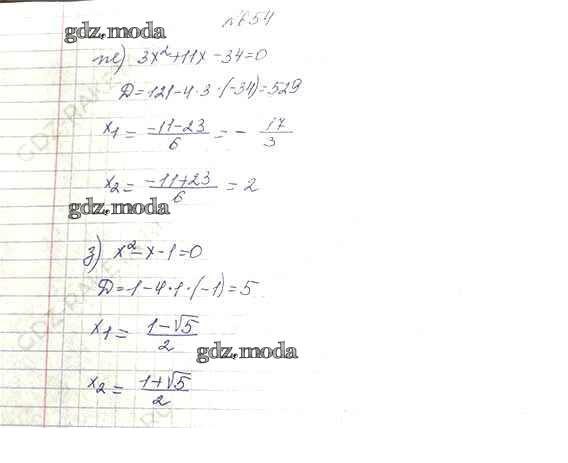 №654
gdz.moda
ж) 3x²+11x-34=0
D=121-4·3·(-34)=529
x₁ = (-11-23)/6 = - 17/3
x₂ = (-11+23)/6 = 2
gdz.moda
з) x²-x-1=0
D=1-4·1·(-1)=5
x₁ = (1-√5)/2
gdz.moda
x₂ = (1+√5)/2